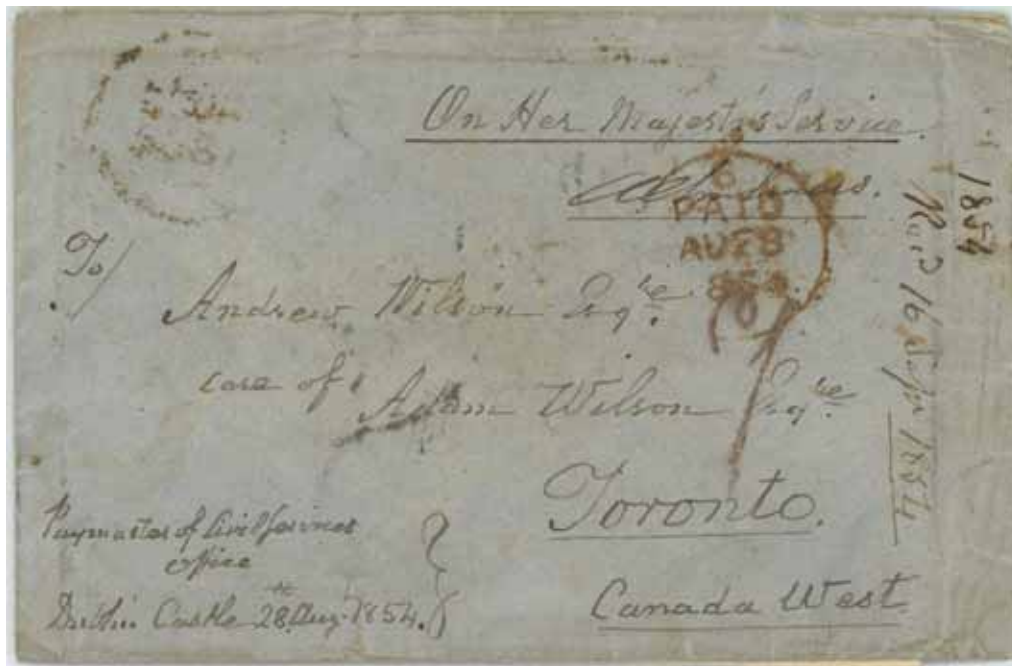 On Her Majesty's Service
PAID
AU 28
1854
To/
Andrew Wilson Esqre.
care of
Adam Wilson Esqre
Toronto.
Canada West
Paymaster of Civil Services
Office
Dublin Castle 28 Aug. 1854.
1854
Recd 16 Sepr 1854